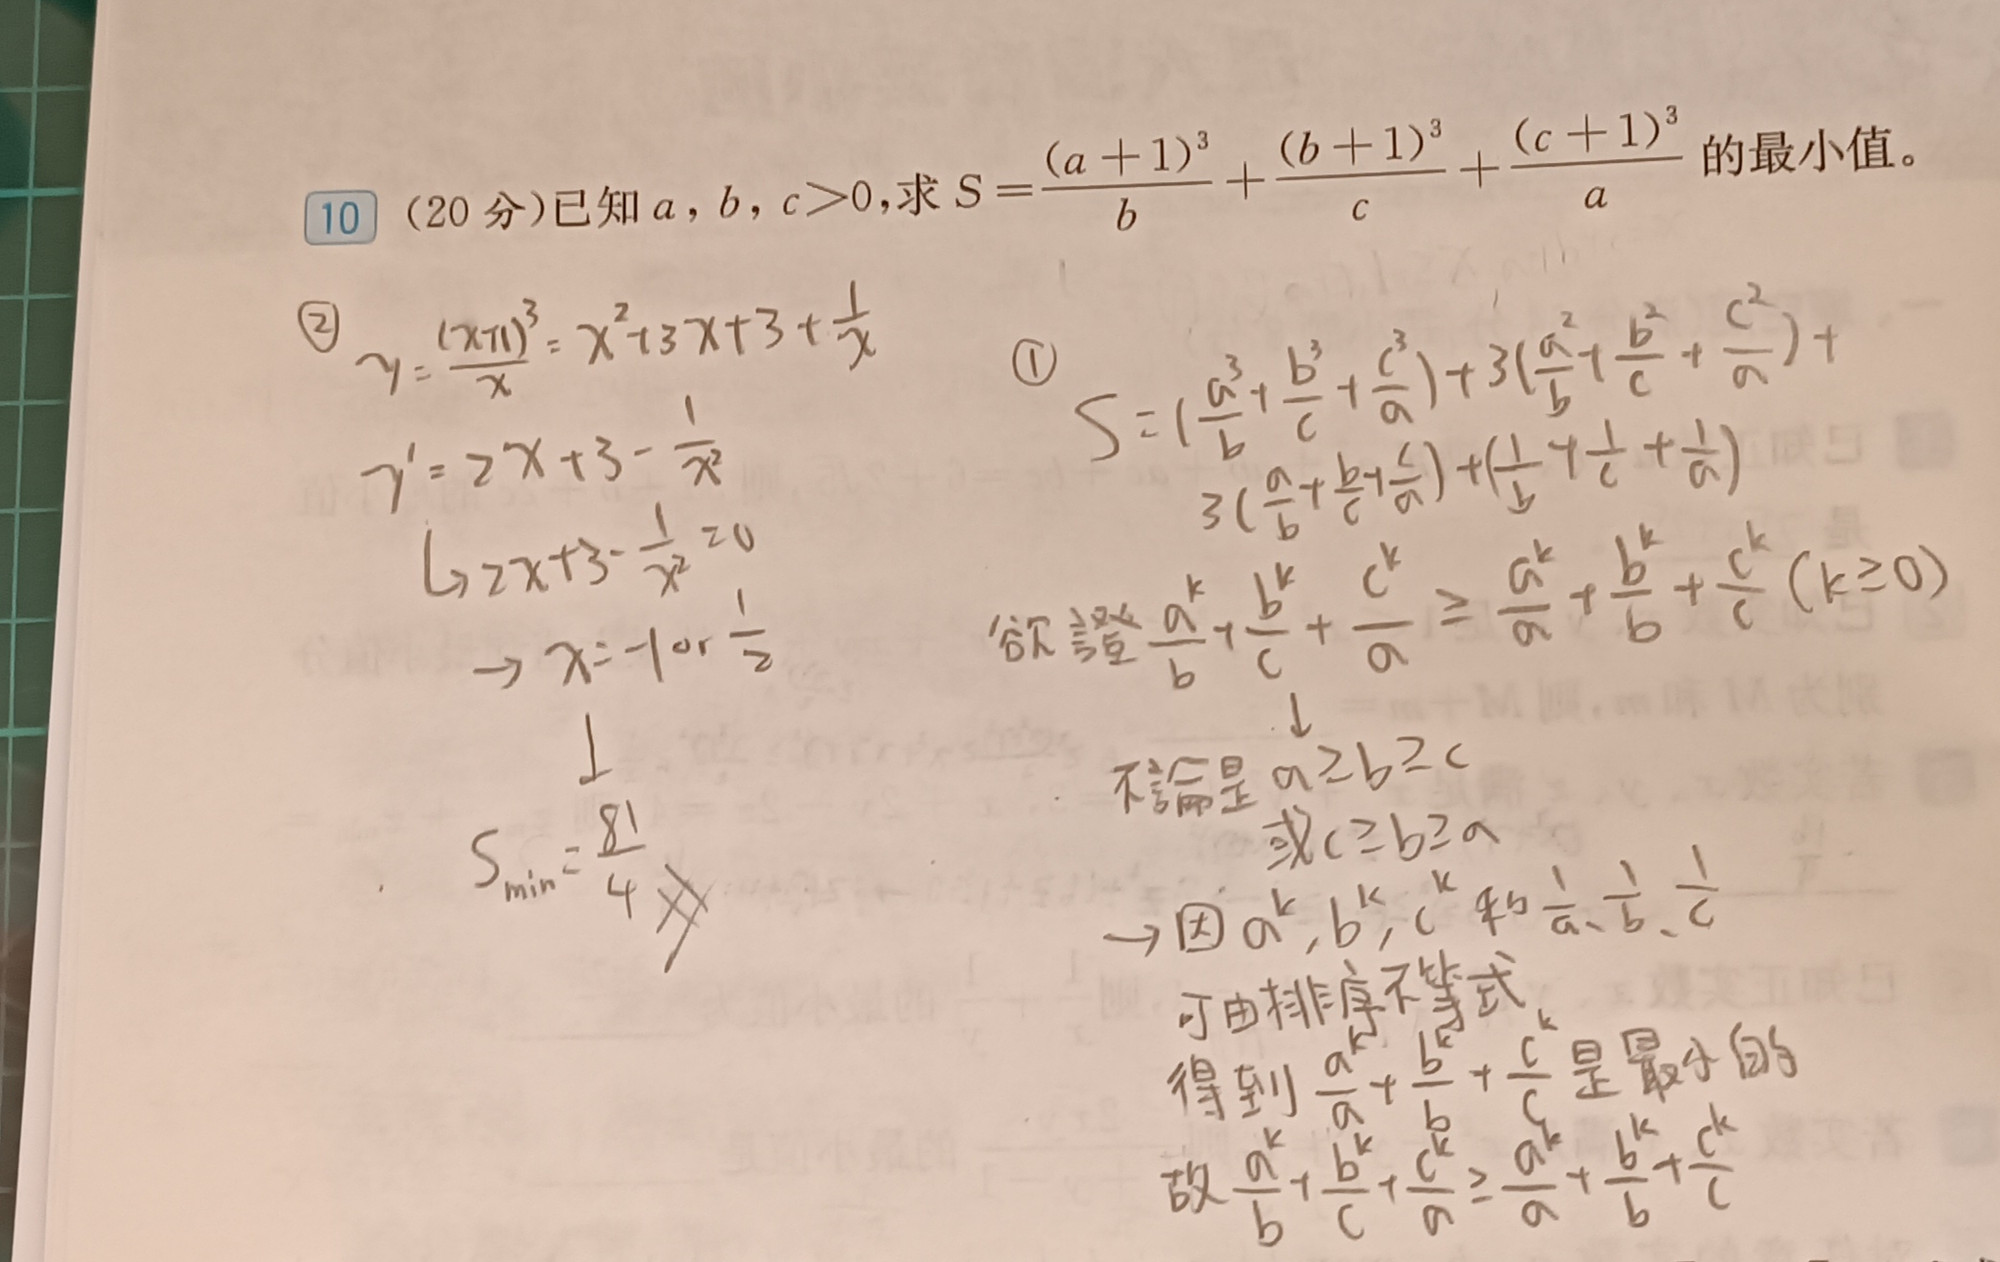 10 (20 分)已知 a, b, c>0,求 S=\frac{(a+1)^3}{b}+\frac{(b+1)^3}{c}+\frac{(c+1)^3}{a} 的最小值。
① S=(\frac{a^3}{b}+\frac{b^3}{c}+\frac{c^3}{a})+3(\frac{a^2}{b}+\frac{b^2}{c}+\frac{c^2}{a})+
3(\frac{a}{b}+\frac{b}{c}+\frac{c}{a})+(\frac{1}{b}+\frac{1}{c}+\frac{1}{a})
欲證 \frac{a^k}{b}+\frac{b^k}{c}+\frac{c^k}{a}≥\frac{a^k}{a}+\frac{b^k}{b}+\frac{c^k}{c} (k≥0)
↓
不論是 a≥b≥c
或 c≥b≥a
→因 a^k, b^k, c^k 和 \frac{1}{a}、\frac{1}{b}、\frac{1}{c}
可由排序不等式
得到 \frac{a^k}{a}+\frac{b^k}{b}+\frac{c^k}{c} 是最小的
故 \frac{a^k}{b}+\frac{b^k}{c}+\frac{c^k}{a}≥\frac{a^k}{a}+\frac{b^k}{b}+\frac{c^k}{c}
② y=\frac{(x+1)^3}{x}=x^2+3x+3+\frac{1}{x}
y'=2x+3-\frac{1}{x^2}
↳2x+3-\frac{1}{x^2}=0
→ x=-1 or \frac{1}{2}
↓
S_{min}=\frac{81}{4}